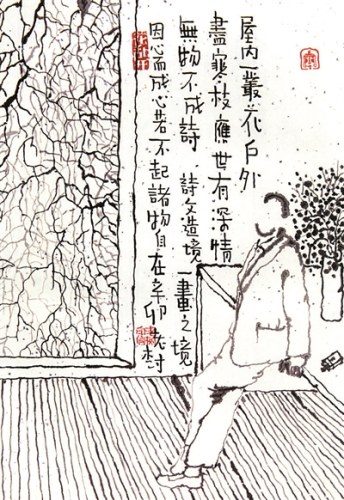 屋內一叢花戶外
盡寒枝應世有深情
無物不成詩 詩文造境一畫之境
因心而成心若不起諸物自在辛卯老树